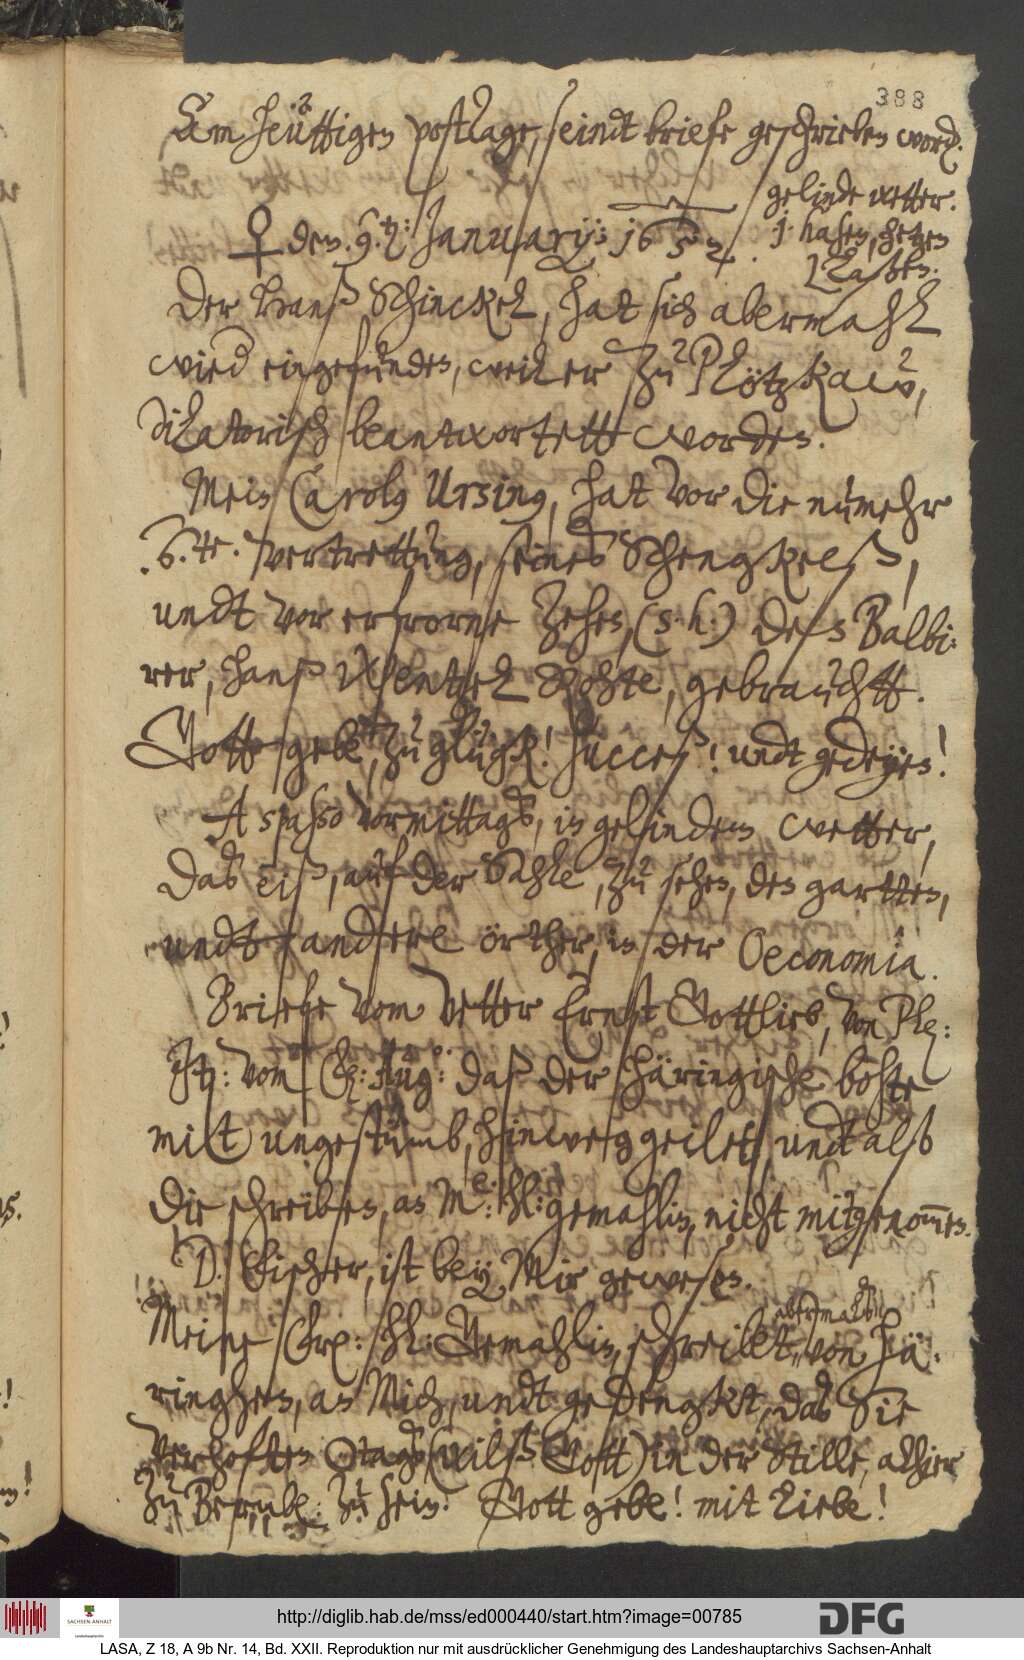 388
Am heüttigen posttage, seindt briefe geschrieben word.
gelinde wetter.
1 hasen, hetzen
Laßbes.
♀ den. 9.ten: January: 1652.
Der Hanß Schinckel, hat sich abermahl
wied eingefunden, weil er zu Plötzkaw,
dilatorisch beantwortett worden.
Mein Carolus Ursinus, hat vor die nunmehr
6.te. vertrettung, seines Schengkelß,
undt vor erfrorne Zehen, (s. h.) des Balbi:
rer, Hanß Wentzel Rohte, gebrauchtt.
Gott gebe, zu glügk! succeß! undt gedeyen!
A spasso vormittags, in gelindem wetter,
das eiß, auf der Sahle, zu sehen, den gartten,
undt andere örther, in der Oeconomia.
Briefe vom Vetter Ernst Gottlieb, von Plz:
It: vom Aug: daß der häringische bohte
mitt ungestümb, hinweg geeilet, undt alß
die schreiben, an Me: hl: gemahlin, nicht mitgenommen.
D. Fischer, ist bey Mir gewesen.
Meine hl: Gemahlin, schreibt abermalß von hä:
ringen, an Mich, undt gedengkt, das Sie
verhoften tags (wilß Gott) in der Stille, alhier
zu Bernb: zu sein. Gott gebe! mit liebe!
http://diglib.hab.de/mss/ed000440/start.htm?image=00785
DFG
SACHSEN-ANHALT
LASA, Z 18, A 9b Nr. 14, Bd. XXII. Reproduktion nur mit ausdrücklicher Genehmigung des Landeshauptarchivs Sachsen-Anhalt